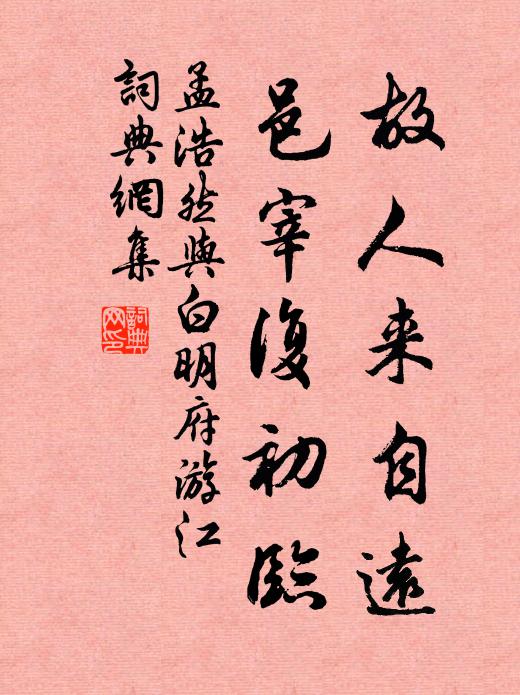 故人来自遠
邑宰復初臨
孟浩然與白明府游江
詞典網集
詞典网印